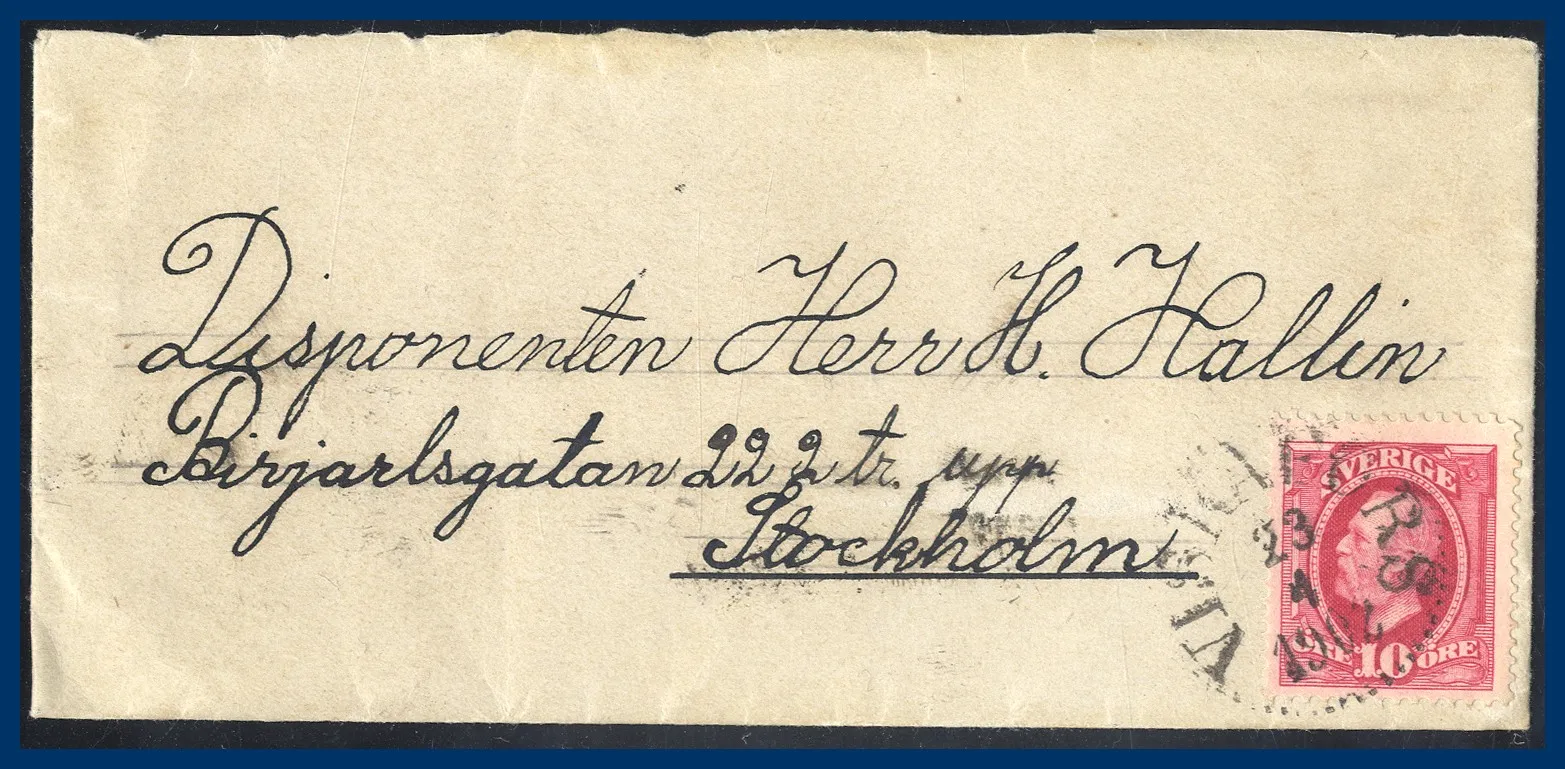 Disponenten Herr H. Hallin
Birjarlsgatan 22 2 tr. upp
Stockholm
SVERIGE
23
4
10 ÖRE